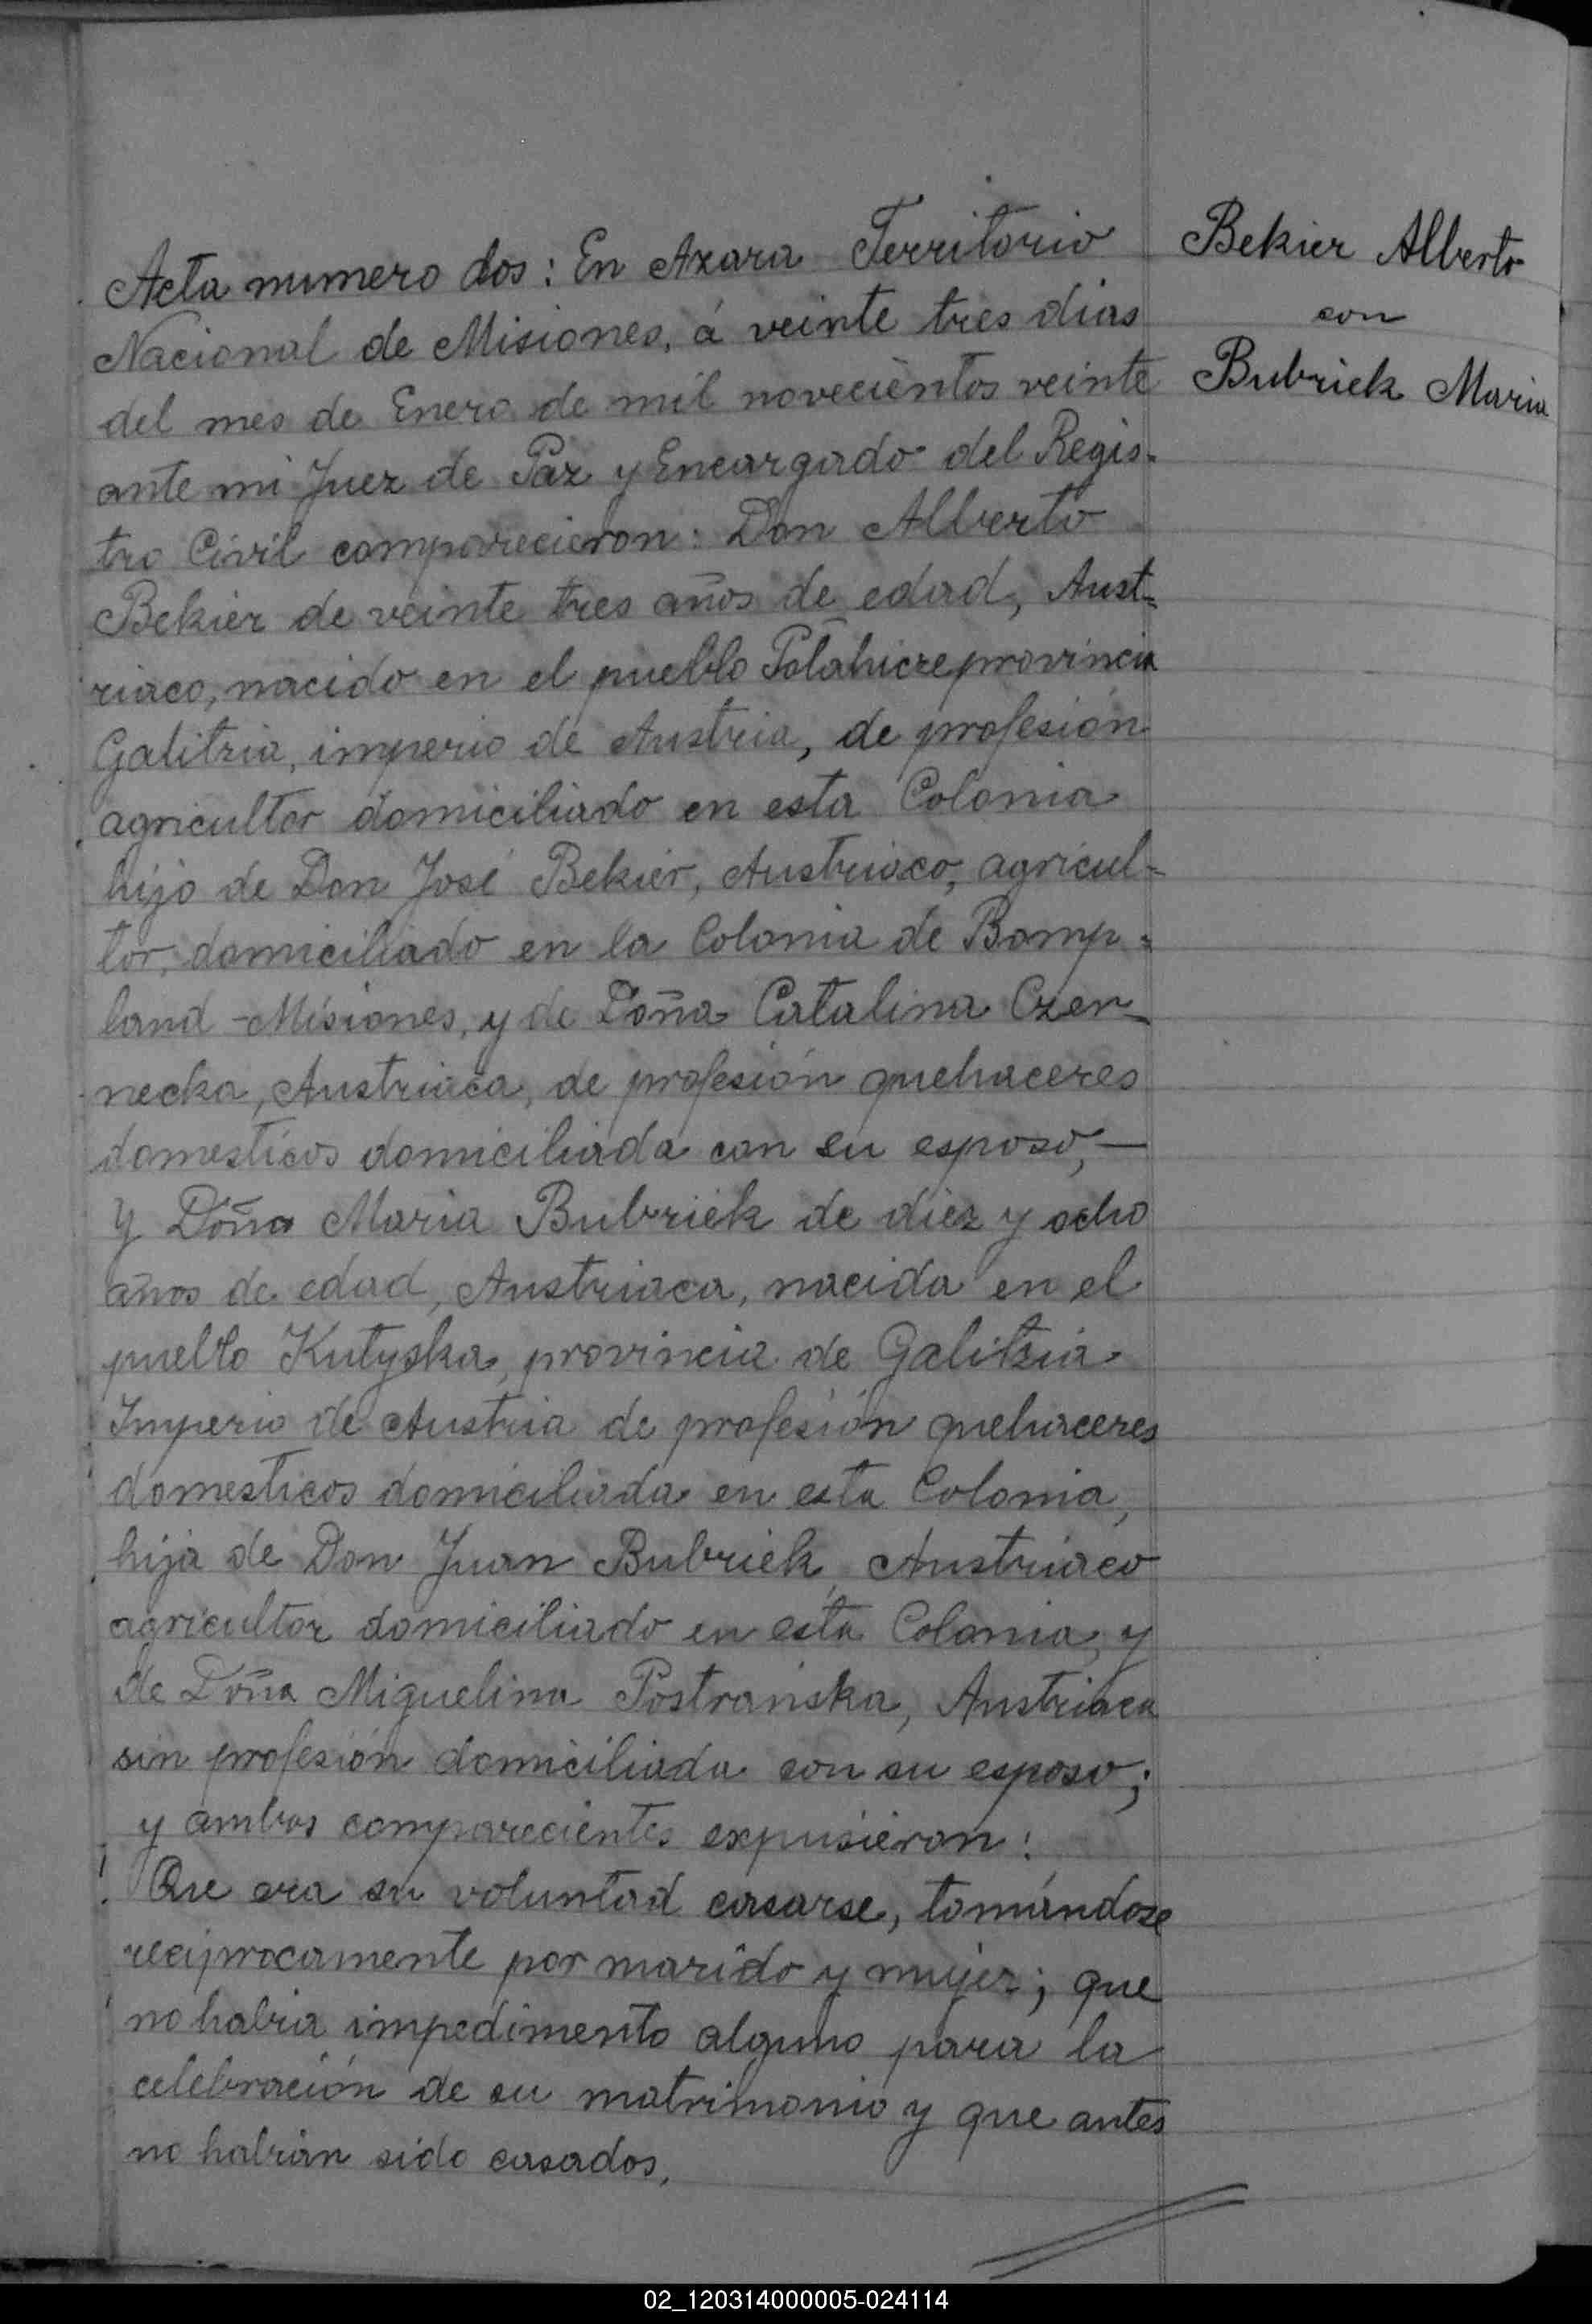 Bekier Alberto
con
Bubriek Maria
Acta numero dos: En Azara Territorio
Nacional de Misiones, á veinte tres dias
del mes de Enero de mil novecientos veinte
ante mi Juez de Paz y Encargado del Regis-
tro Civil comparecieron: Don Alberto
Bekier de veinte tres años de edad, Aust-
riaco, nacido en el pueblo provincia
Galitzia, imperio de Austria, de profesión
agricultor domiciliado en esta Colonia
hijo de Don José Bekier, Austriaco, agricul-
tor, domiciliado en la Colonia de Bomp-
land -Misiones, y de Doña Catalina Czer-
necka, Austriaca, de profesión quehaceres
domesticos domiciliada con su esposo,—
y Doña Maria Bubriek de diez y ocho
años de edad, Austriaca, nacida en el
pueblo Kutyska, provincia de Galitzia
Imperio de Austria de profesión quehaceres
domesticos domiciliada en esta Colonia,
hija de Don Juan Bubriek, Austriaco
agricultor domiciliado en esta Colonia, y
de Doña Miguelina Postrańska, Austriaca
sin profesión domiciliada con su esposo;
y ambos comparecientes expusieron:
Que era su voluntad casarse, tomándose
reciprocamente por marido y mujer; que
no habia impedimento alguno para la
celebración de su matrimonio y que antes
no habian sido casados.
02_120314000005-024114